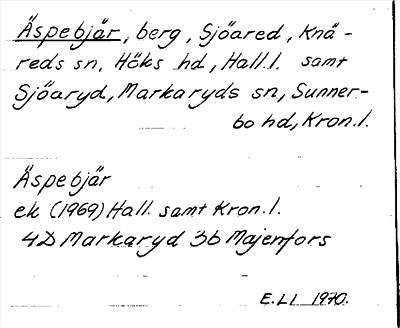 Äspebjär, berg, Sjöared, Knä-
reds sn, Höks hd, Hall.l. samt
Sjöaryd, Markaryds sn, Sunner-
bo hd, Kron.l.
Äspebjär
ek (1969) Hall. samt Kron.l.
4D Markaryd 3b Majenfors
E.Ll 1970.